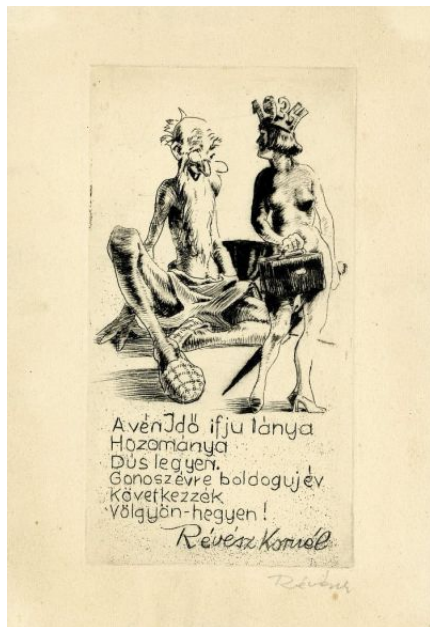 1934
A vén Idő ifju lánya
Hozománya
Dús legyen.
Gonosz évre boldog uj év
Következzék
Völgyön-hegyen!
Révész Kornél
Révész